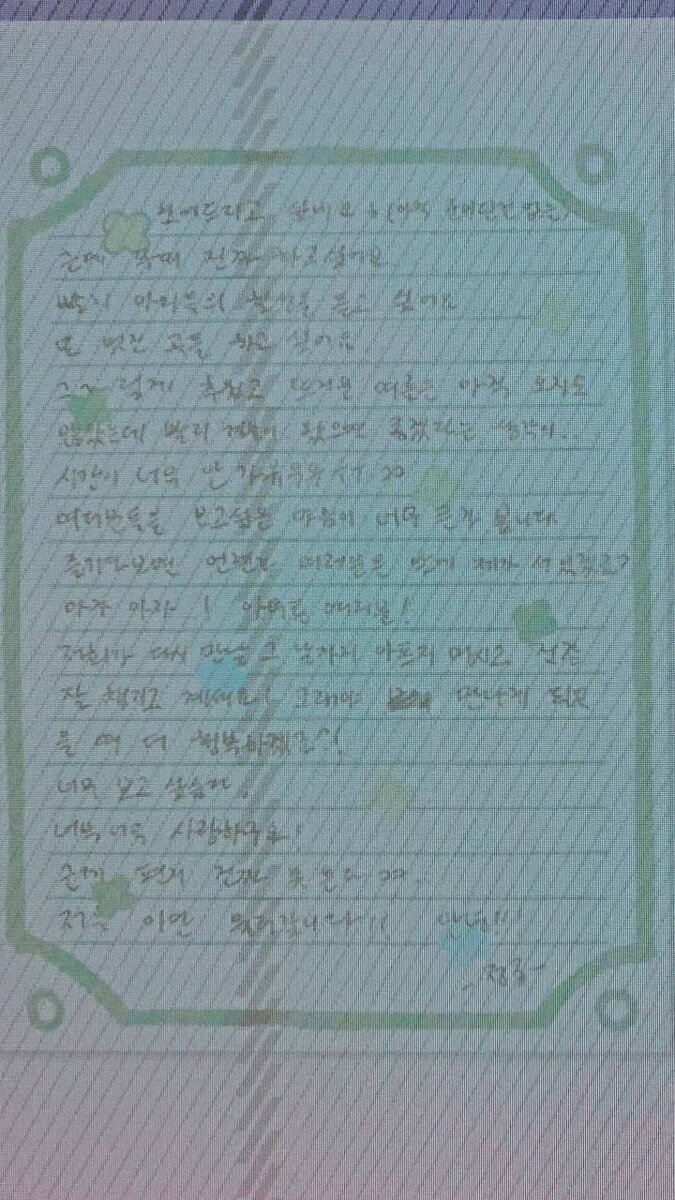 보여드리고 준비도 (아직
근데 콕때 진짜 하고싶어요
빨리 아미들의 함성을 듣고 싶어요
또 멋진 곡을 하고 싶어요
렇게 춥고 뜨거운 여름은 아직 오지도
않았는데 빨리 겨울이 왔으면 좋겠다는 생각이..
시간이 너무 안 가
여러분들을 보고싶은 마음이 너무 큰가 봅니다
즐기다보면 언젠가 여러분들 앞에 제가 서 있겠죠?
아자 아자! 아미 여러분!
저희가 다시 만날 그 날까지 아프지 마시고 건강
잘 챙기고 계세요! 그래야 만나게 되
을 때 더 행복하겠죠^^!
너무 보고 싶습니다.
너무너무 사랑하구요!
근데 편지 진짜 못 쓴다
저는 이만 물러갑니다!! 안녕!!!
-정국-